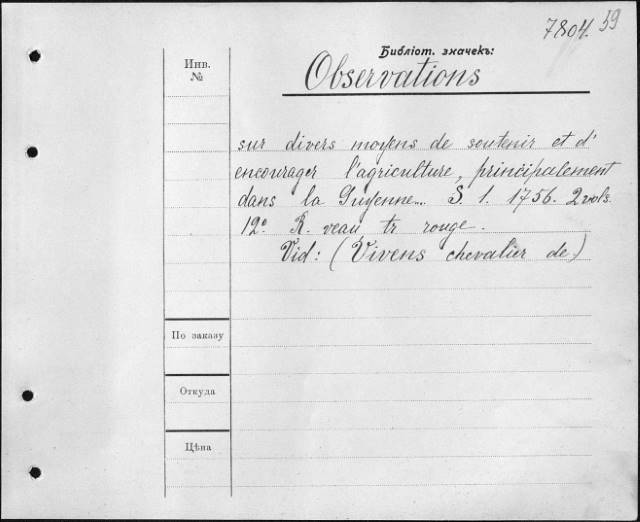 7804.59
Библіот. значекъ:
Инв.
№
Observations
sur divers moyens de soutenir et d'
encourager l'agriculture, principalement
dans la Guyenne... S. l. 1756. 2 vols.
12º R. veau tr rouge.
Vid: (Vivens chevalier de)
По заказу
Откуда
Цѣна